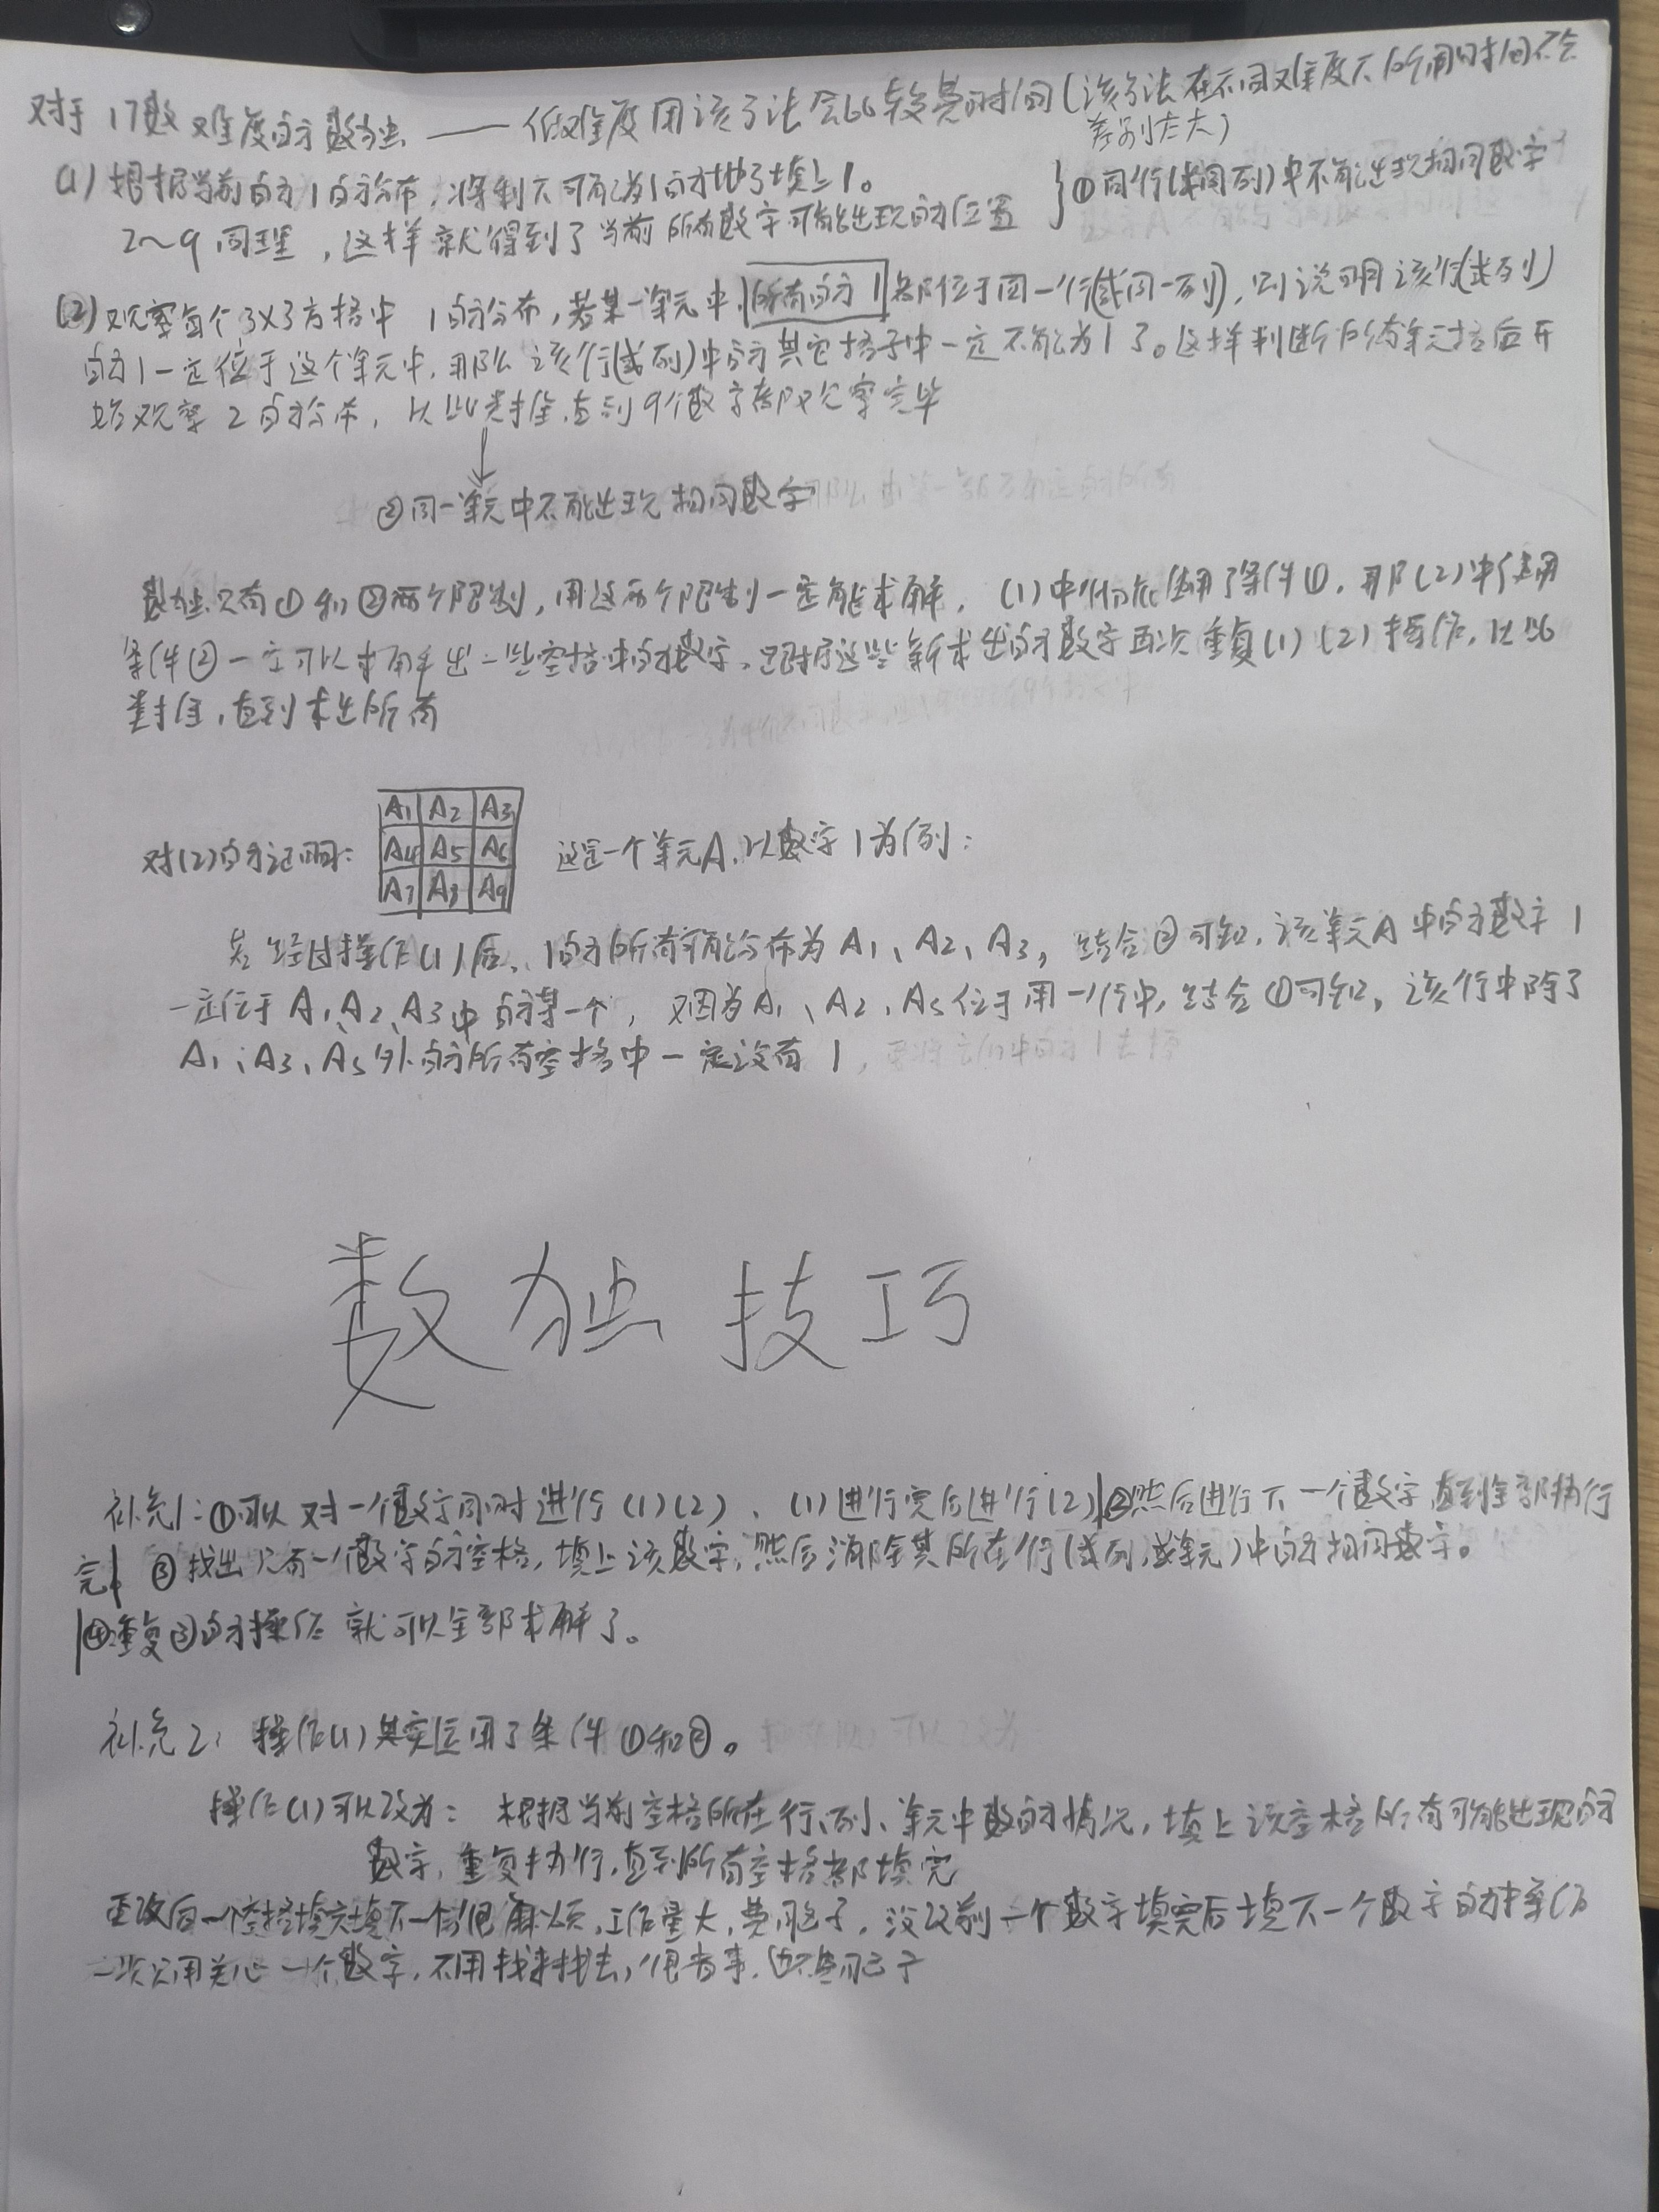 对于17数难度的数独 —— 低难度用该方法会比较费时间(该方法在不同难度下所用时间不会
差别太大)
(1) 根据当前的1的分布，将剩下可能为1的地方填上1。
2~9同理，这样就得到了当前所有数字可能出现的位置
}①同行(或同列)中不能出现相同数字
(2) 观察每个3×3方格中1的分布，若某一单元中，所有的1都位于同一行(或同一列)，则说明该行(或列)
的1一定位于这个单元中，那么该行(或列)中的其它格子中一定不能为1了。这样判断所有单元格后开
始观察2的分布，以此类推，直到9个数字都观察完毕
②同一单元中不能出现相同数字
数独只有①和②两个限制，用这两个限制一定能求解，(1)中使用了条件①，那(2)中使用
条件②一定可以求解出一些空格中的数字，跟据这些新求出的数字再次重复(1)(2)操作，以此
类推，直到求出所有
对(2)的证明：
A1 A2 A3
A4 A5 A6
A7 A8 A9
这是一个单元A，以数字1为例：
若经过操作(1)后，1的所有可能分布为A1、A2、A3，结合②可知，该单元A中的数字1
一定位于A1、A2、A3中的某一个，又因为A1、A2、A3位于同一行中，结合①可知，该行中除了
A1、A3、A3外的所有空格中一定没有1，
数独技巧
补充1：①可以对一个数字同时进行(1)(2)、(1)进行完后进行(2)②然后进行下一个数字，直到全部执行
完。③找出只有一个数字的空格，填上该数字，然后消除其所在行(或列，或单元)中的相同数字。
④重复③的操作就可以全部求解了。
补充2：操作(1)其实运用了条件①和②。
操作(1)可以改为：根据当前空格所在行、列、单元中数的情况，填上该空格所有可能出现的
数字，重复执行，直到所有空格都填完
更改后一个空格填完填下一个很麻烦，工作量大，费脑子，没改前一个数字填完后填下一个数字的操作
一次只用关心一个数字，不用找来找去，很省事，也不费脑子